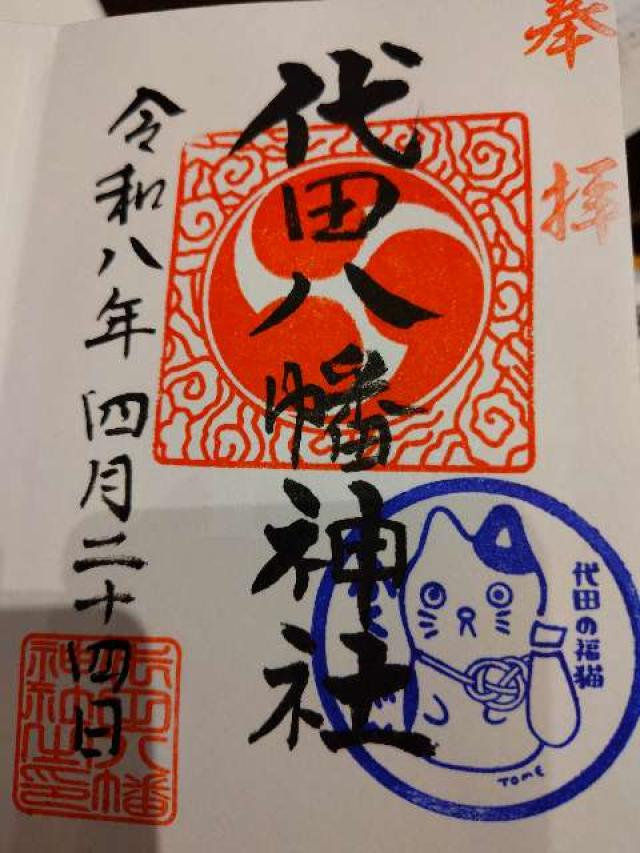 奉拝
代田八幡神社
令和八年四月二十四日
代田の福猫
TOME
代田八幡
神社之印